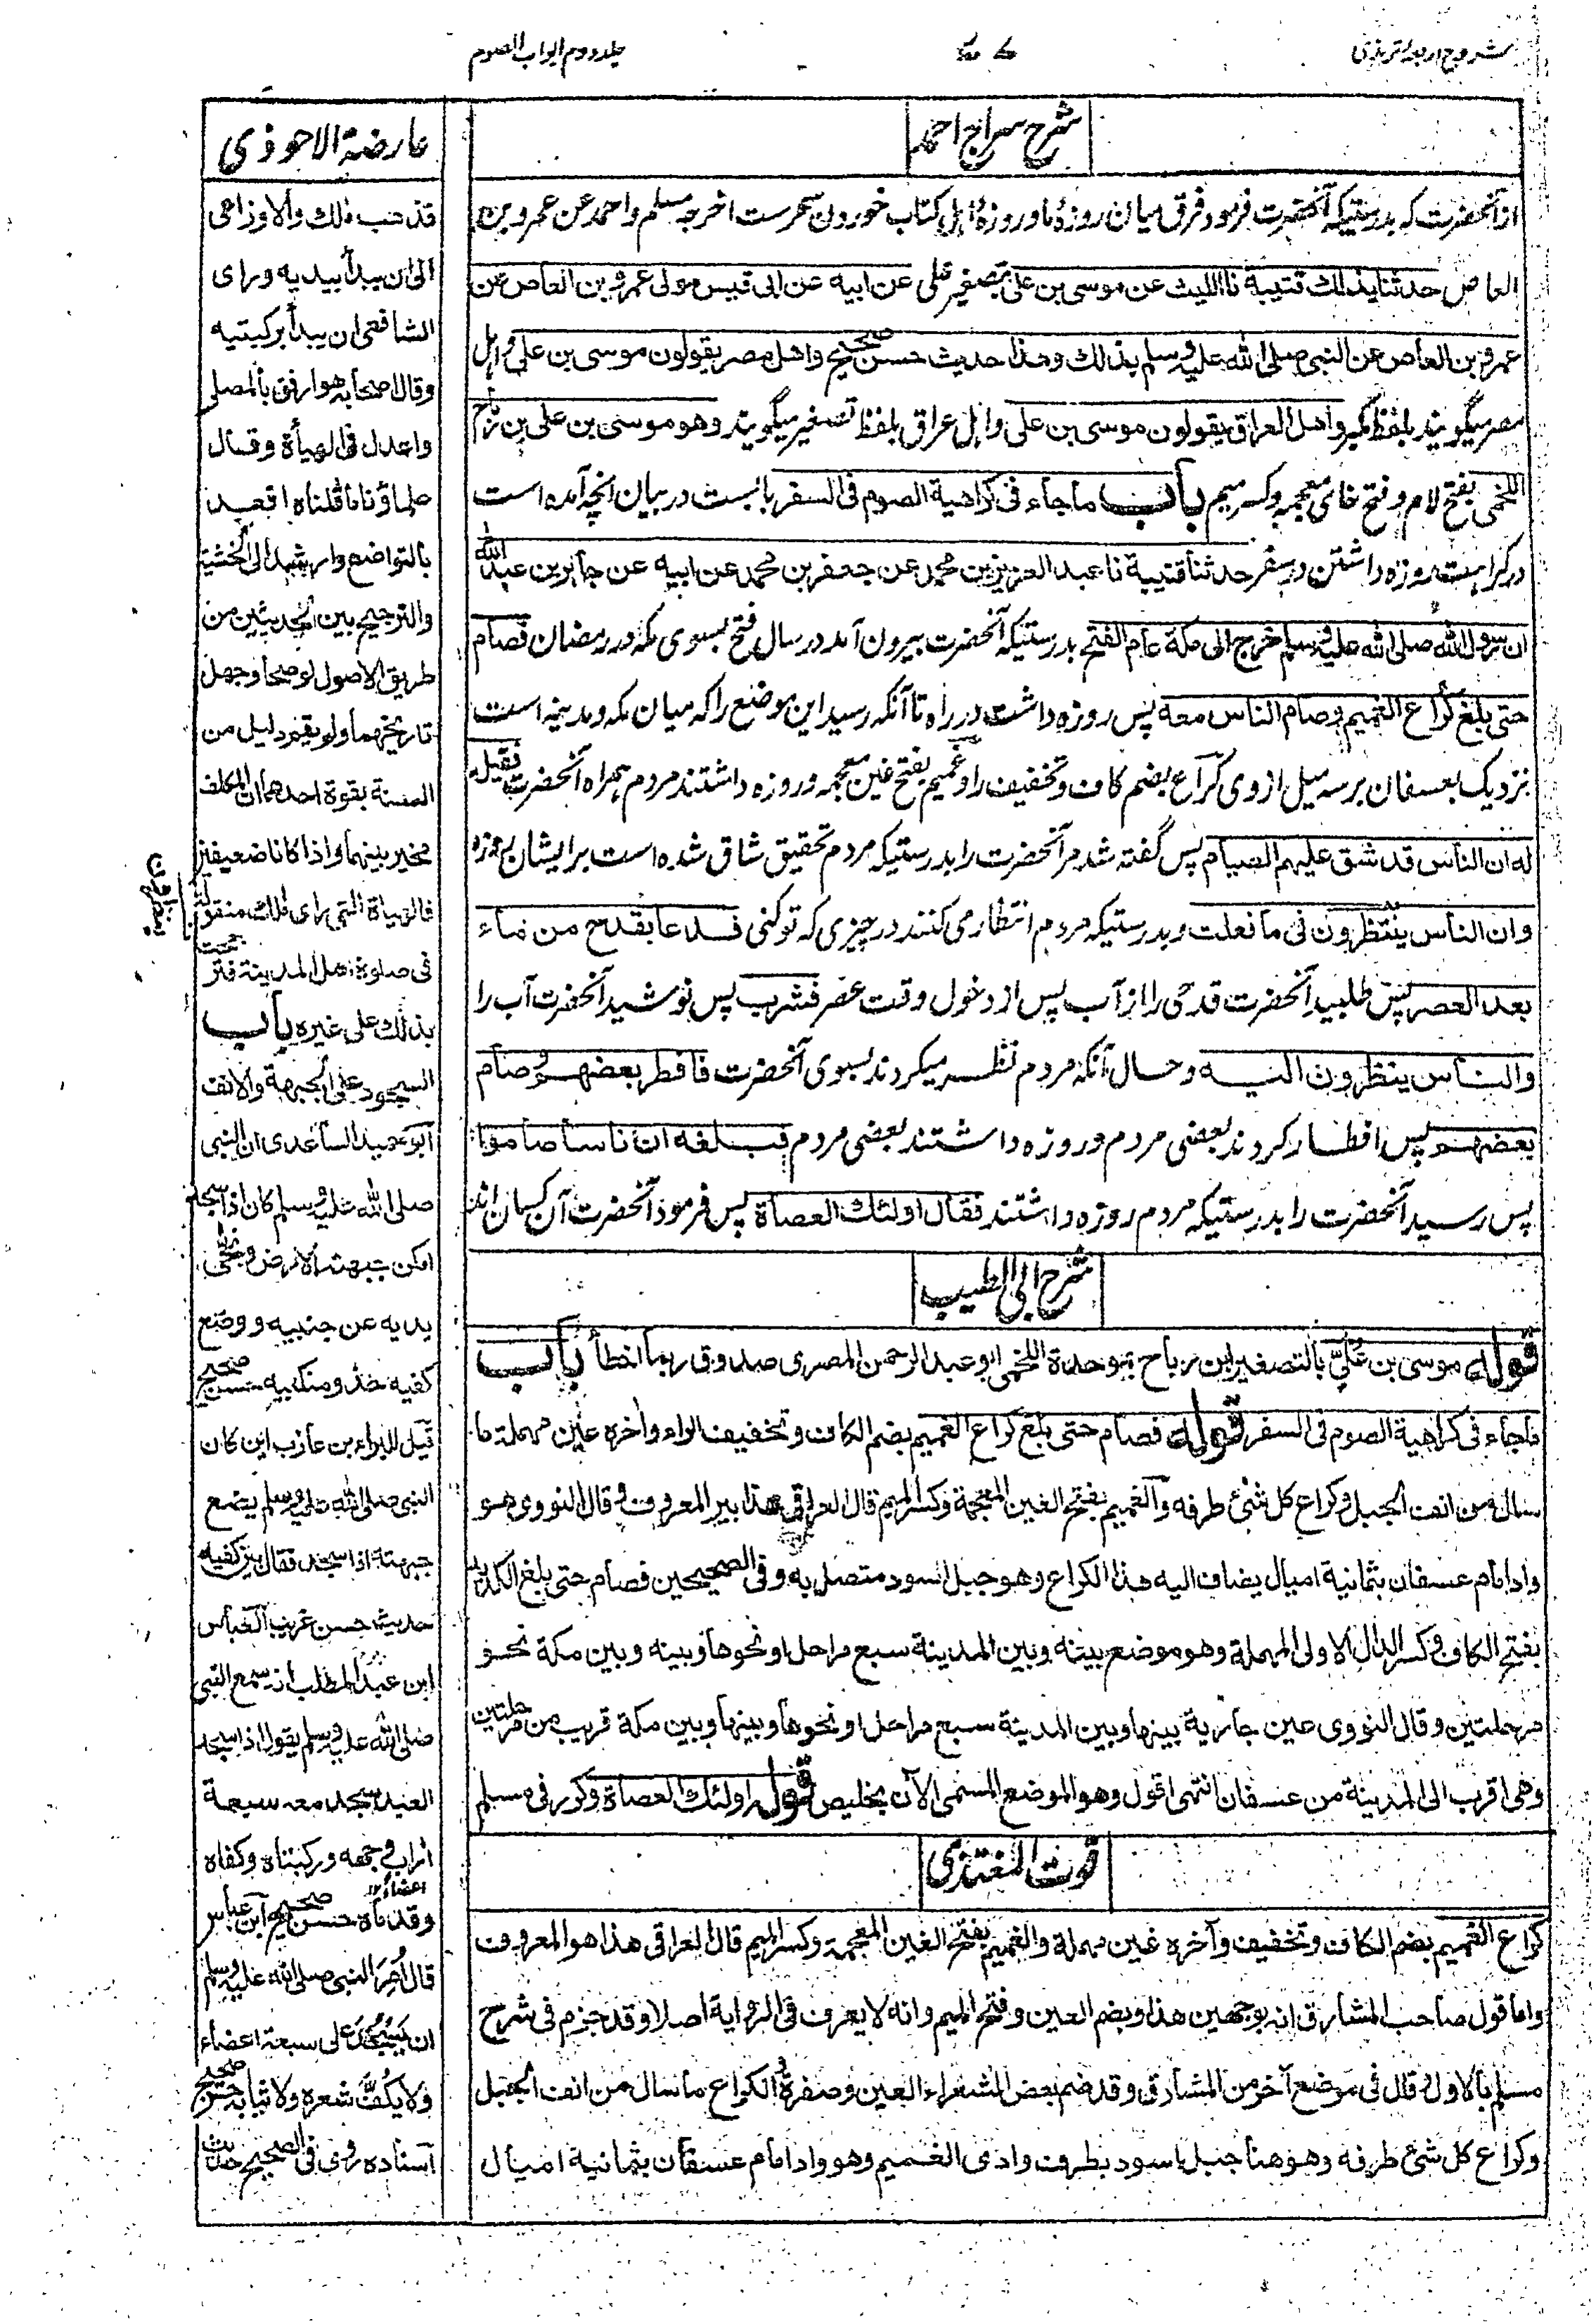 شروح اربعه ترمذی
جلد دوم ابواب الصوم
شرح سراج احمد
از آنحضرت که بدرستیکه آنحضرت فرمود فرق میان روزهٔ ما و روزهٔ اهل کتاب خوردن سحرست اخرجه مسلم واحمد عن عمرو بن
العاص حدثنا بذلك قتیبة نا اللیث عن موسی بن علی بتصغیر علی عن ابیه عن ابی قیس مولی عمرو بن العاص عن
عمرو بن العاص عن النبی صلی الله علیه وسلم بذلك وهذا حدیث حسن صحیح واهل مصر یقولون موسی بن علی و اہل
مصر میگویند بلفظ مکبر واهل العراق یقولون موسی بن علی و اہل عراق بلفظ تصغیر میگویند وهو موسی بن علی بن رباح
اللخمی بفتح لام و فتح خای معجمه وکسر میم باب ما جاء فی کراهیة الصوم فی السفر بابست در بیان آنچه آمده است
در کراہست روزه داشتن در سفر حدثنا قتیبة نا عبد العزیز بن محمد عن جعفر بن محمد عن ابیه عن جابر بن عبد الله
ان رسول الله صلی الله علیه وسلم خرج الی مکة عام الفتح بدرستیکه آنحضرت بیرون آمد در سال فتح بسوی مکه در رمضان فصام
حتی بلغ کراع الغمیم وصام الناس معه پس روزه داشت در راه تا آنکه رسید این موضع را که میان مکه و مدینه است
نزدیک بعسفان بر سه میل از وی کراع بضم کاف وتخفیف را و غمیم بفتح غین معجمه و روزه داشتند مردم ہمراه آنحضرت فقیل
له ان الناس قد شق علیهم الصیام پس گفته شد مر آنحضرت را بدرستیکه مردم تحقیق شاق شده است بر ایشان روزه
وان الناس ینتظرون فی ما فعلت و بدرستیکه مردم انتظار می کنند در چیزی که تو کنی فدعا بقدح من ماء
بعد العصر پس طلبید آنحضرت قدحی را از آب پس از دخول وقت عصر فشرب پس نوشید آنحضرت آب را
والناس ینظرون الیه و حال آنکه مردم نظر میکردند بسوی آنحضرت فافطر بعضهم وصام
بعضهم پس افطار کردند بعضی مردم و روزه داشتند بعضی مردم فبلغه ان ناسا صاموا
پس رسید آنحضرت را بدرستیکه مردم روزه داشتند فقال اولئك العصاة پس فرمود آنحضرت آن کسان اند
شرح ابی الطیب
قوله موسی بن عُلَیّ بالتصغیر ابن رباح بموحدة اللخمی ابو عبد الرحمن المصری صدوق ربما اخطأ باب
ماجاء فی کراهیة الصوم فی السفر قوله فصام حتی بلغ کراع الغمیم بضم الکاف وتخفیف الراء واخره عین مهملة ما
سال من انف الجبل وکراع کل شئ طرفه والغمیم بفتح الغین المعجمة وکسر المیم قال العراقی هذا هو المعروف وقال النووی هو
واد امام عسفان بثمانیة امیال یضاف الیه هذا الکراع وهو جبل اسود متصل به وفی الصحیحین فصام حتی بلغ الکدید
بفتح الکاف وکسر الدال الاولی المهملة وهو موضع بینه وبین المدینة سبع مراحل او نحوها وبینه وبین مکة نحو
مرحلتین وقال النووی عین جاریة بینها وبین المدینة سبع مراحل او نحوها وبینها وبین مکة قریب من مرحلتین
وهی اقرب الی المدینة من عسفان انتهی اقول وهو الموضع المسمی الآن بخلیص قوله اولئك العصاة وکرر فی مسلم
قوت المغتذی
کراع الغمیم بضم الکاف وتخفیف وآخره عین مهملة والغمیم بفتح الغین المعجمة وکسر المیم قال العراقی هذا هو المعروف
واما قول صاحب المشارق انه بوجهین هذا وبضم الغین وفتح المیم وانه لا یعرف فی الروایة اصلا وقد جزم فی شرح
مسلم بالاول وقال فی موضع آخر من المشارق وقد ضم بعض الشعراء الغین وصغره والکراع ما سال من انف الجبل
وکراع کل شئ طرفه وهو هنا جبل اسود بطرف وادی الغمیم وهو واد امام عسفان بثمانیة امیال
عارضة الاحوذی
فذهب مالك والاوزاعی
الی ان یبدأ بیدیه ورای
الشافعی ان یبدأ برکبتیه
وقال اصحابه هو ارفق بالمصلی
واعدل فی الهیأة وقال
علماؤنا ما قلناه اقعد
بالتواضع وارشد الی الخشیة
والترجیح بین الحدیثین من
طریق الاصول لو صحا وجهل
تاریخهما ولو یقم دلیل من
السنة بقوة احدهما ان المکلف
مخیر بینهما واذا کانا ضعیفین
فالهیاة التی رای مالك منقولة
فی صلوة اهل المدینة
بذلك علی غیره باب
السجود علی الجبهة والانف
ابو حمید الساعدی ان النبی
صلی الله علیه وسلم کان اذا سجد
امکن جبهته الارض ونحی
یدیه عن جنبیه ووضع
کفیه حذو منکبیه حسن صحیح
قیل للبراء بن عازب این کان
النبی صلی الله علیه وسلم یضع
جبهته اذا سجد فقال بین کفیه
حدیث حسن غریب العباس
ابن عبد المطلب انه سمع النبی
صلی الله علیه وسلم یقول اذا سجد
العبد سجد معه سبعة
اراب وجهه ورکبتاه وکفاه
وقدماه حسن صحیح ابن عباس
قال اُمِرَ النبی صلی الله علیه وسلم
ان یسجد علی سبعة اعضاء
ولا یکف شعره ولا ثیابه حسن صحیح
اسناده روی فی الصحیح حدیث